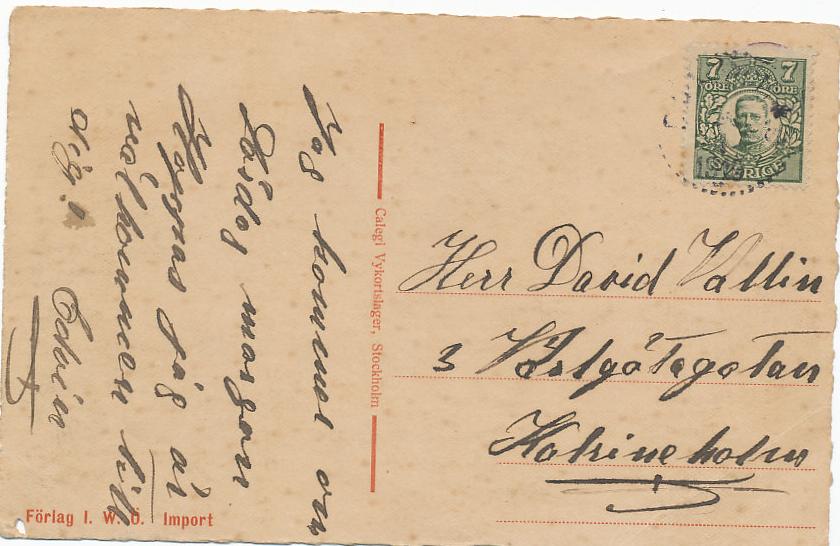 Jag kommer om
Lördag morgon
Hoppas jag är
välkommen till
dig.
Edvin
Calegi Vykortslager, Stockholm
7 7
ÖRE ÖRE
SVERIGE
Herr David Vallin
3 Västgötagatan
Katrineholm
Förlag I. W. O. Import